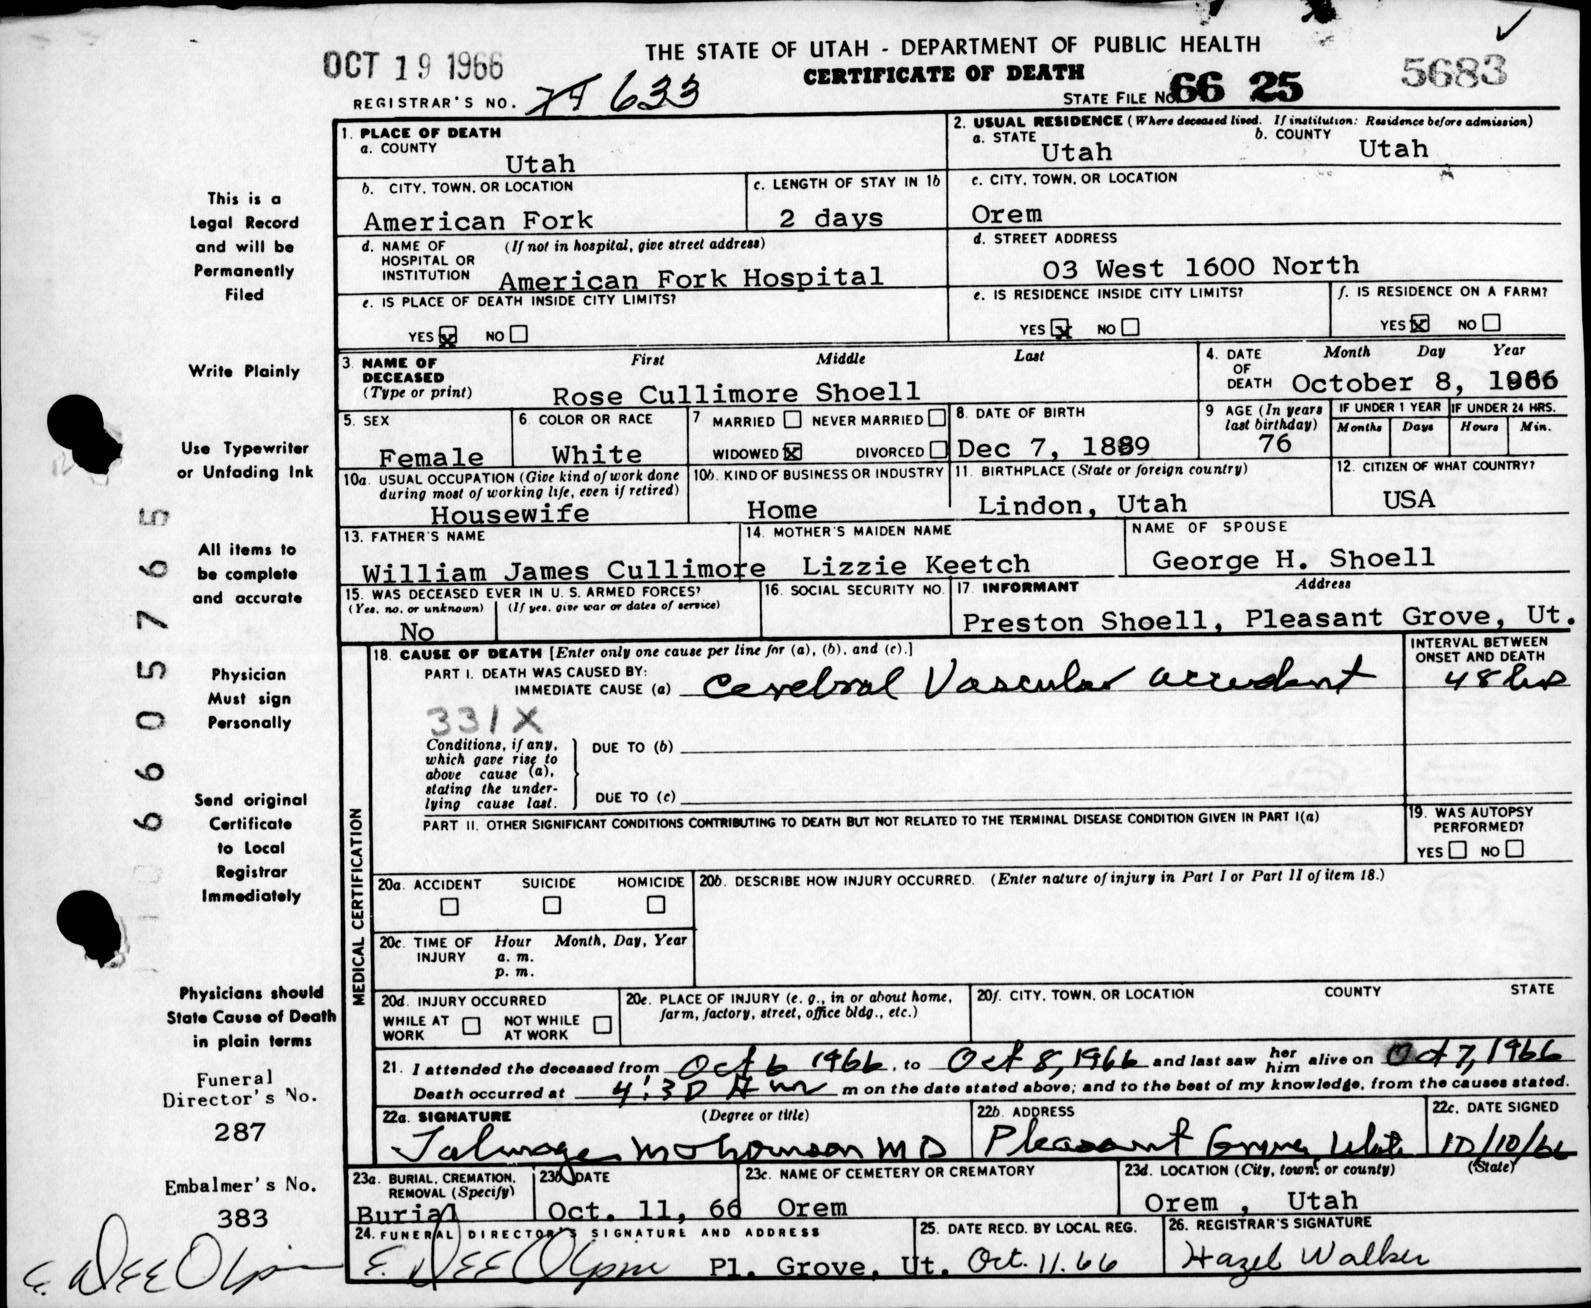 THE STATE OF UTAH - DEPARTMENT OF PUBLIC HEALTH
CERTIFICATE OF DEATH
OCT 19 1966
5683
REGISTRAR'S NO. 633
STATE FILE No. 66 25
1. PLACE OF DEATH
a. COUNTY
Utah
2. USUAL RESIDENCE (Where deceased lived. If institution: Residence before admission)
a. STATE Utah b. COUNTY Utah
b. CITY, TOWN, OR LOCATION
American Fork
c. LENGTH OF STAY IN 1b
2 days
c. CITY, TOWN, OR LOCATION
Orem
d. NAME OF HOSPITAL OR INSTITUTION (If not in hospital, give street address)
American Fork Hospital
d. STREET ADDRESS
03 West 1600 North
e. IS PLACE OF DEATH INSIDE CITY LIMITS?
YES x NO
e. IS RESIDENCE INSIDE CITY LIMITS?
YES x NO
f. IS RESIDENCE ON A FARM?
YES x NO
3. NAME OF DECEASED (Type or print) First Middle Last
Rose Cullimore Shoell
4. DATE OF DEATH Month Day Year
October 8, 1966
5. SEX
Female
6. COLOR OR RACE
White
7 MARRIED NEVER MARRIED
WIDOWED x DIVORCED
8. DATE OF BIRTH
Dec 7, 1889
9 AGE (In years last birthday)
76
IF UNDER 1 YEAR
Months Days
IF UNDER 24 HRS.
Hours Min.
10a. USUAL OCCUPATION (Give kind of work done during most of working life, even if retired)
Housewife
10b. KIND OF BUSINESS OR INDUSTRY
Home
11. BIRTHPLACE (State or foreign country)
Lindon, Utah
12. CITIZEN OF WHAT COUNTRY?
USA
13. FATHER'S NAME
William James Cullimore
14. MOTHER'S MAIDEN NAME
Lizzie Keetch
NAME OF SPOUSE
George H. Shoell
15. WAS DECEASED EVER IN U. S. ARMED FORCES?
(Yes, no, or unknown) (If yes, give war or dates of service)
No
16. SOCIAL SECURITY NO.
17. INFORMANT Address
Preston Shoell, Pleasant Grove, Ut.
MEDICAL CERTIFICATION
18. CAUSE OF DEATH [Enter only one cause per line for (a), (b), and (c).]
PART I. DEATH WAS CAUSED BY:
IMMEDIATE CAUSE (a) Cerebral Vascular accident
INTERVAL BETWEEN ONSET AND DEATH
48 hrs
331X
Conditions, if any, which gave rise to above cause (a), stating the underlying cause last.
DUE TO (b)
DUE TO (c)
PART II. OTHER SIGNIFICANT CONDITIONS CONTRIBUTING TO DEATH BUT NOT RELATED TO THE TERMINAL DISEASE CONDITION GIVEN IN PART I(a)
19. WAS AUTOPSY PERFORMED?
YES NO
20a. ACCIDENT SUICIDE HOMICIDE
20b. DESCRIBE HOW INJURY OCCURRED. (Enter nature of injury in Part I or Part II of item 18.)
20c. TIME OF INJURY Hour Month, Day, Year
a. m.
p. m.
20d. INJURY OCCURRED
WHILE AT WORK NOT WHILE AT WORK
20e. PLACE OF INJURY (e. g., in or about home, farm, factory, street, office bldg., etc.)
20f. CITY, TOWN, OR LOCATION COUNTY STATE
21. I attended the deceased from Oct 6 1966, to Oct 8, 1966 and last saw her him alive on Oct 7, 1966
Death occurred at 4:30 A m m on the date stated above; and to the best of my knowledge, from the causes stated.
22a. SIGNATURE (Degree or title)
Talmage M D
22b. ADDRESS
Pleasant Grove, Utah
22c. DATE SIGNED
10/10/66
23a. BURIAL, CREMATION, REMOVAL (Specify)
Burial
23b. DATE
Oct. 11, 66
23c. NAME OF CEMETERY OR CREMATORY
Orem
23d. LOCATION (City, town, or county) (State)
Orem , Utah
24. FUNERAL DIRECTOR'S SIGNATURE AND ADDRESS
E. Dee Olpin Pl. Grove, Ut.
25. DATE RECD. BY LOCAL REG.
Oct. 11. 66
26. REGISTRAR'S SIGNATURE
Hazel Walker
This is a
Legal Record
and will be
Permanently
Filed
Write Plainly
Use Typewriter
or Unfading Ink
All items to
be complete
and accurate
Physician
Must sign
Personally
Send original
Certificate
to Local
Registrar
Immediately
Physicians should
State Cause of Death
in plain terms
Funeral
Director's No.
287
Embalmer's No.
383
E. Dee Olpin
6605765